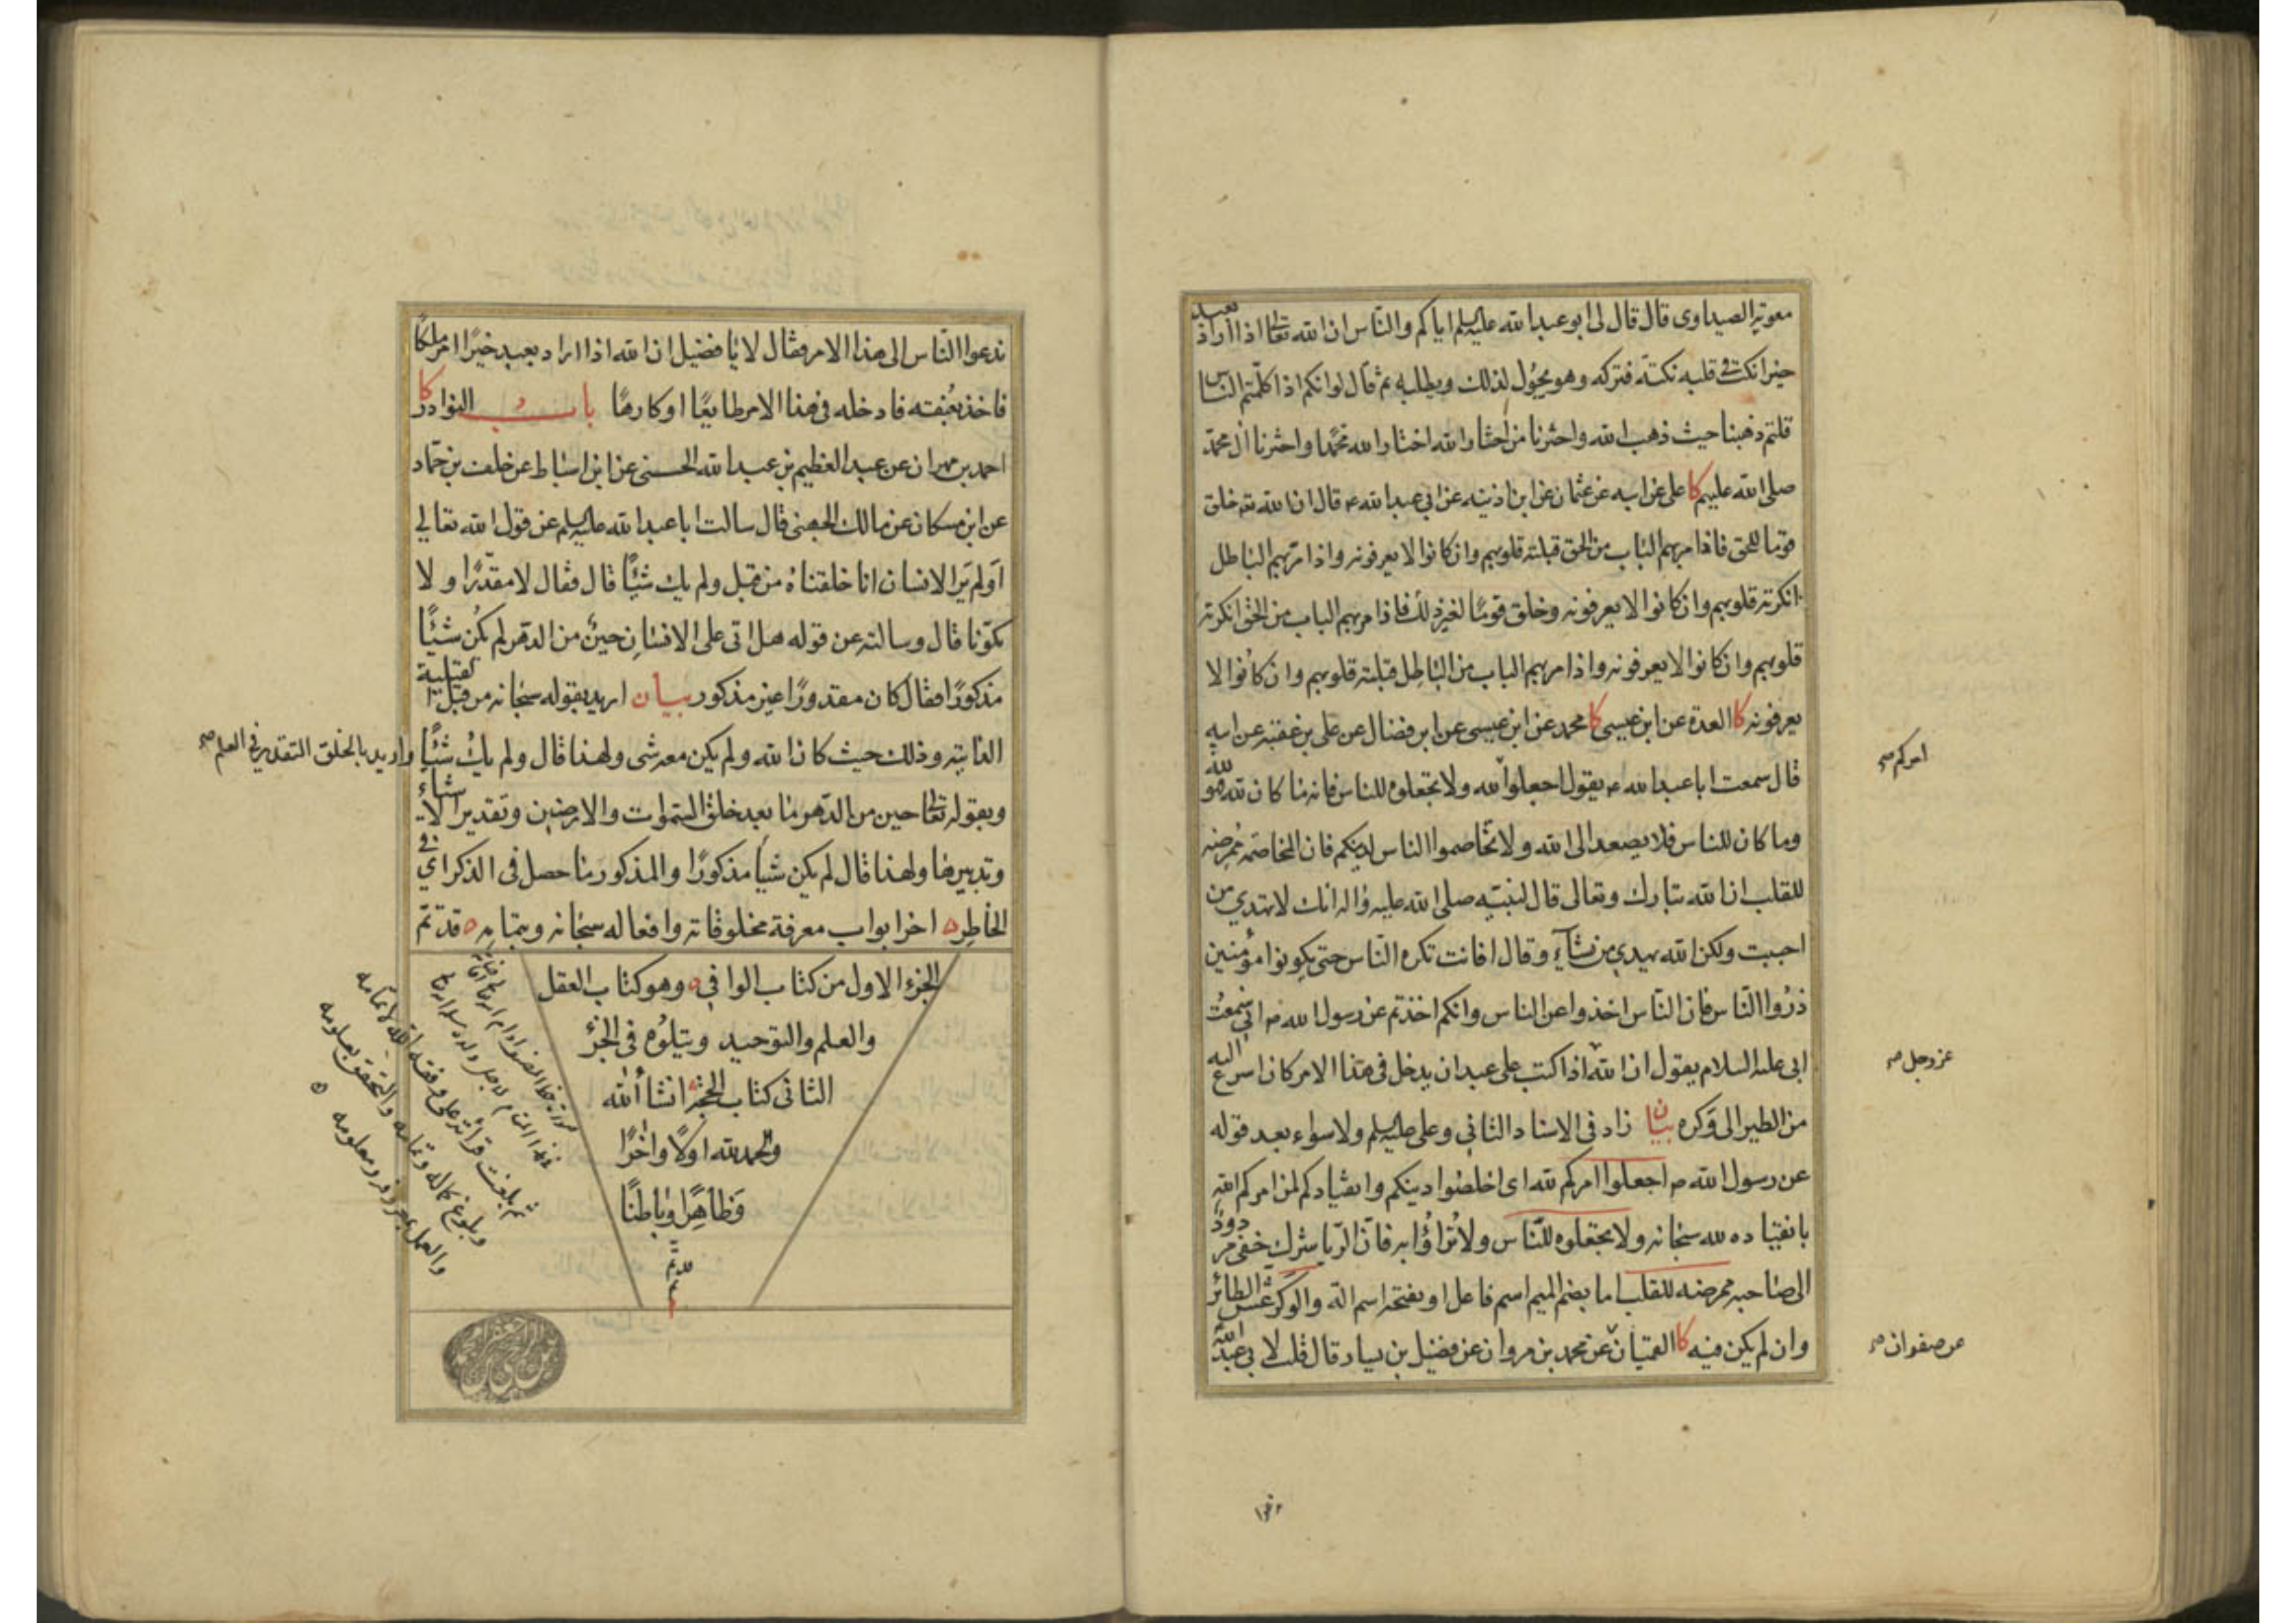 معوية الصيداوى قال قال لى ابو عبد الله عليه السلم اياكم والناس ان الله تعالى اذا اراد بعبد
خيرا نكت فى قلبه نكتة فتركه وهو يجول لذلك ويطلبه ثم قال لو انكم اذا كلمتم الناس
قلتم ذهبنا حيث ذهب الله واخترنا من اختار الله اختار الله محمدا واخترنا ال محمد
صلى الله عليهم كا على عن ابيه عن عثمان عن ابن اذينه عن ابى عبد الله ع قال ان الله تع خلق
قوما للحق فاذا مر بهم الباب من الحق قبلته قلوبهم وان كانوا لا يعرفونه واذا مر بهم الباطل
انكرته قلوبهم وان كانوا لا يعرفونه وخلق قوما لغير ذلك فاذا مر بهم الباب من الحق انكرته
قلوبهم وان كانوا لا يعرفونه واذا مر بهم الباب من الباطل قبلته قلوبهم وان كانوا لا
يعرفونه كا العدة عن ابن عيسى كا محمد عن ابن عيسى عن ابن فضال عن على بن عقبة عن ابيه
قال سمعت ابا عبد الله ع يقول اجعلوا لله ولا تجعلوه للناس فانه ما كان لله فهو لله
امركم صح
وما كان للناس فلا يصعد الى الله ولا تخاصموا الناس لدينكم فان المخاصمة ممرضه
للقلب ان الله تبارك وتعالى قال لنبيه صلى الله عليه واله انك لا تهدي من
احببت ولكن الله يهدي من يشآء وقال افانت تكره الناس حتى يكونوا مؤمنين
ذروا الناس فان الناس اخذوا عن الناس وانكم اخذتم عن رسول الله ص انى سمعت
ابى عليه السلام يقول ان الله اذا كتب على عبد ان يدخل فى هذا الامر كان اسرع اليه
عز وجل صح
من الطير الى وكره بيان زاد فى الاسناد الثانى وعلى عليه السلم ولا سواء بعد قوله
عن رسول الله ص اجعلوا امركم لله اى اخلصوا دينكم وانقيادكم لمن امركم الله
بانقياده لله سبحانه ولا تجعلوه للناس ولا تراؤا به فان الريا شرك خفى مردود
الى صاحبه ممرضه للقلب اما بضم الميم اسم فاعل او بفتحه اسم الة والوكر عش الطائر
وان لم يكن فيه كا القميان عن محمد بن مروان عن فضيل بن يسار قال قلت لابى عبد الله
عن صفوان صح
ندعوا الناس الى هذا الامر فقال لا يا فضيل ان الله اذا اراد بعبد خيرا امر ملكا
فاخذ بعنقه فادخله فى هذا الامر طايعا او كارها باب النوادر كا
احمد بن مهران عن عبد العظيم بن عبد الله الحسنى عن ابن اسباط عن خلف بن حماد
عن ابن مسكان عن مالك الجهنى قال سالت ابا عبد الله عليه السلم عن قول الله تعالي
اولم ير الانسان انا خلقناه من قبل ولم يك شيئا قال فقال لا مقدرا ولا
مكونا قال وسالته عن قوله هل اتى على الانسان حين من الدهر لم يكن شيئا
مذكورا فقال كان مقدورا غير مذكور بيان اريد بقوله سبحانه من قبل القبلية
الذاتيه وذلك حيث كان الله ولم يكن معه شى ولهذا قال ولم يك شيئا واريد بالخلق التقدير فى العلم صح
وبقوله تعالى حين من الدهر ما بعد خلق السموات والارضين وتقدير الاشياء
وتدبيرها ولهذا قال لم يكن شيا مذكورا والمذكور ما حصل فى الذكر اي فى
الخاطر اخر ابواب معرفة مخلوقاته وافعاله سبحانه وبتمامه قد تم
الجزء الاول من كتاب الوافي وهو كتاب العقل
والعلم والتوحيد ويتلوه فى الجزء
الثانى كتاب الحجة انشا الله
والحمد لله اولا واخرا
وظاهرا وباطنا
ثم بلغت قرائة على وفقه الله لاتمامه
وبلوغ كماله وتمامه والتحقق بعلومه